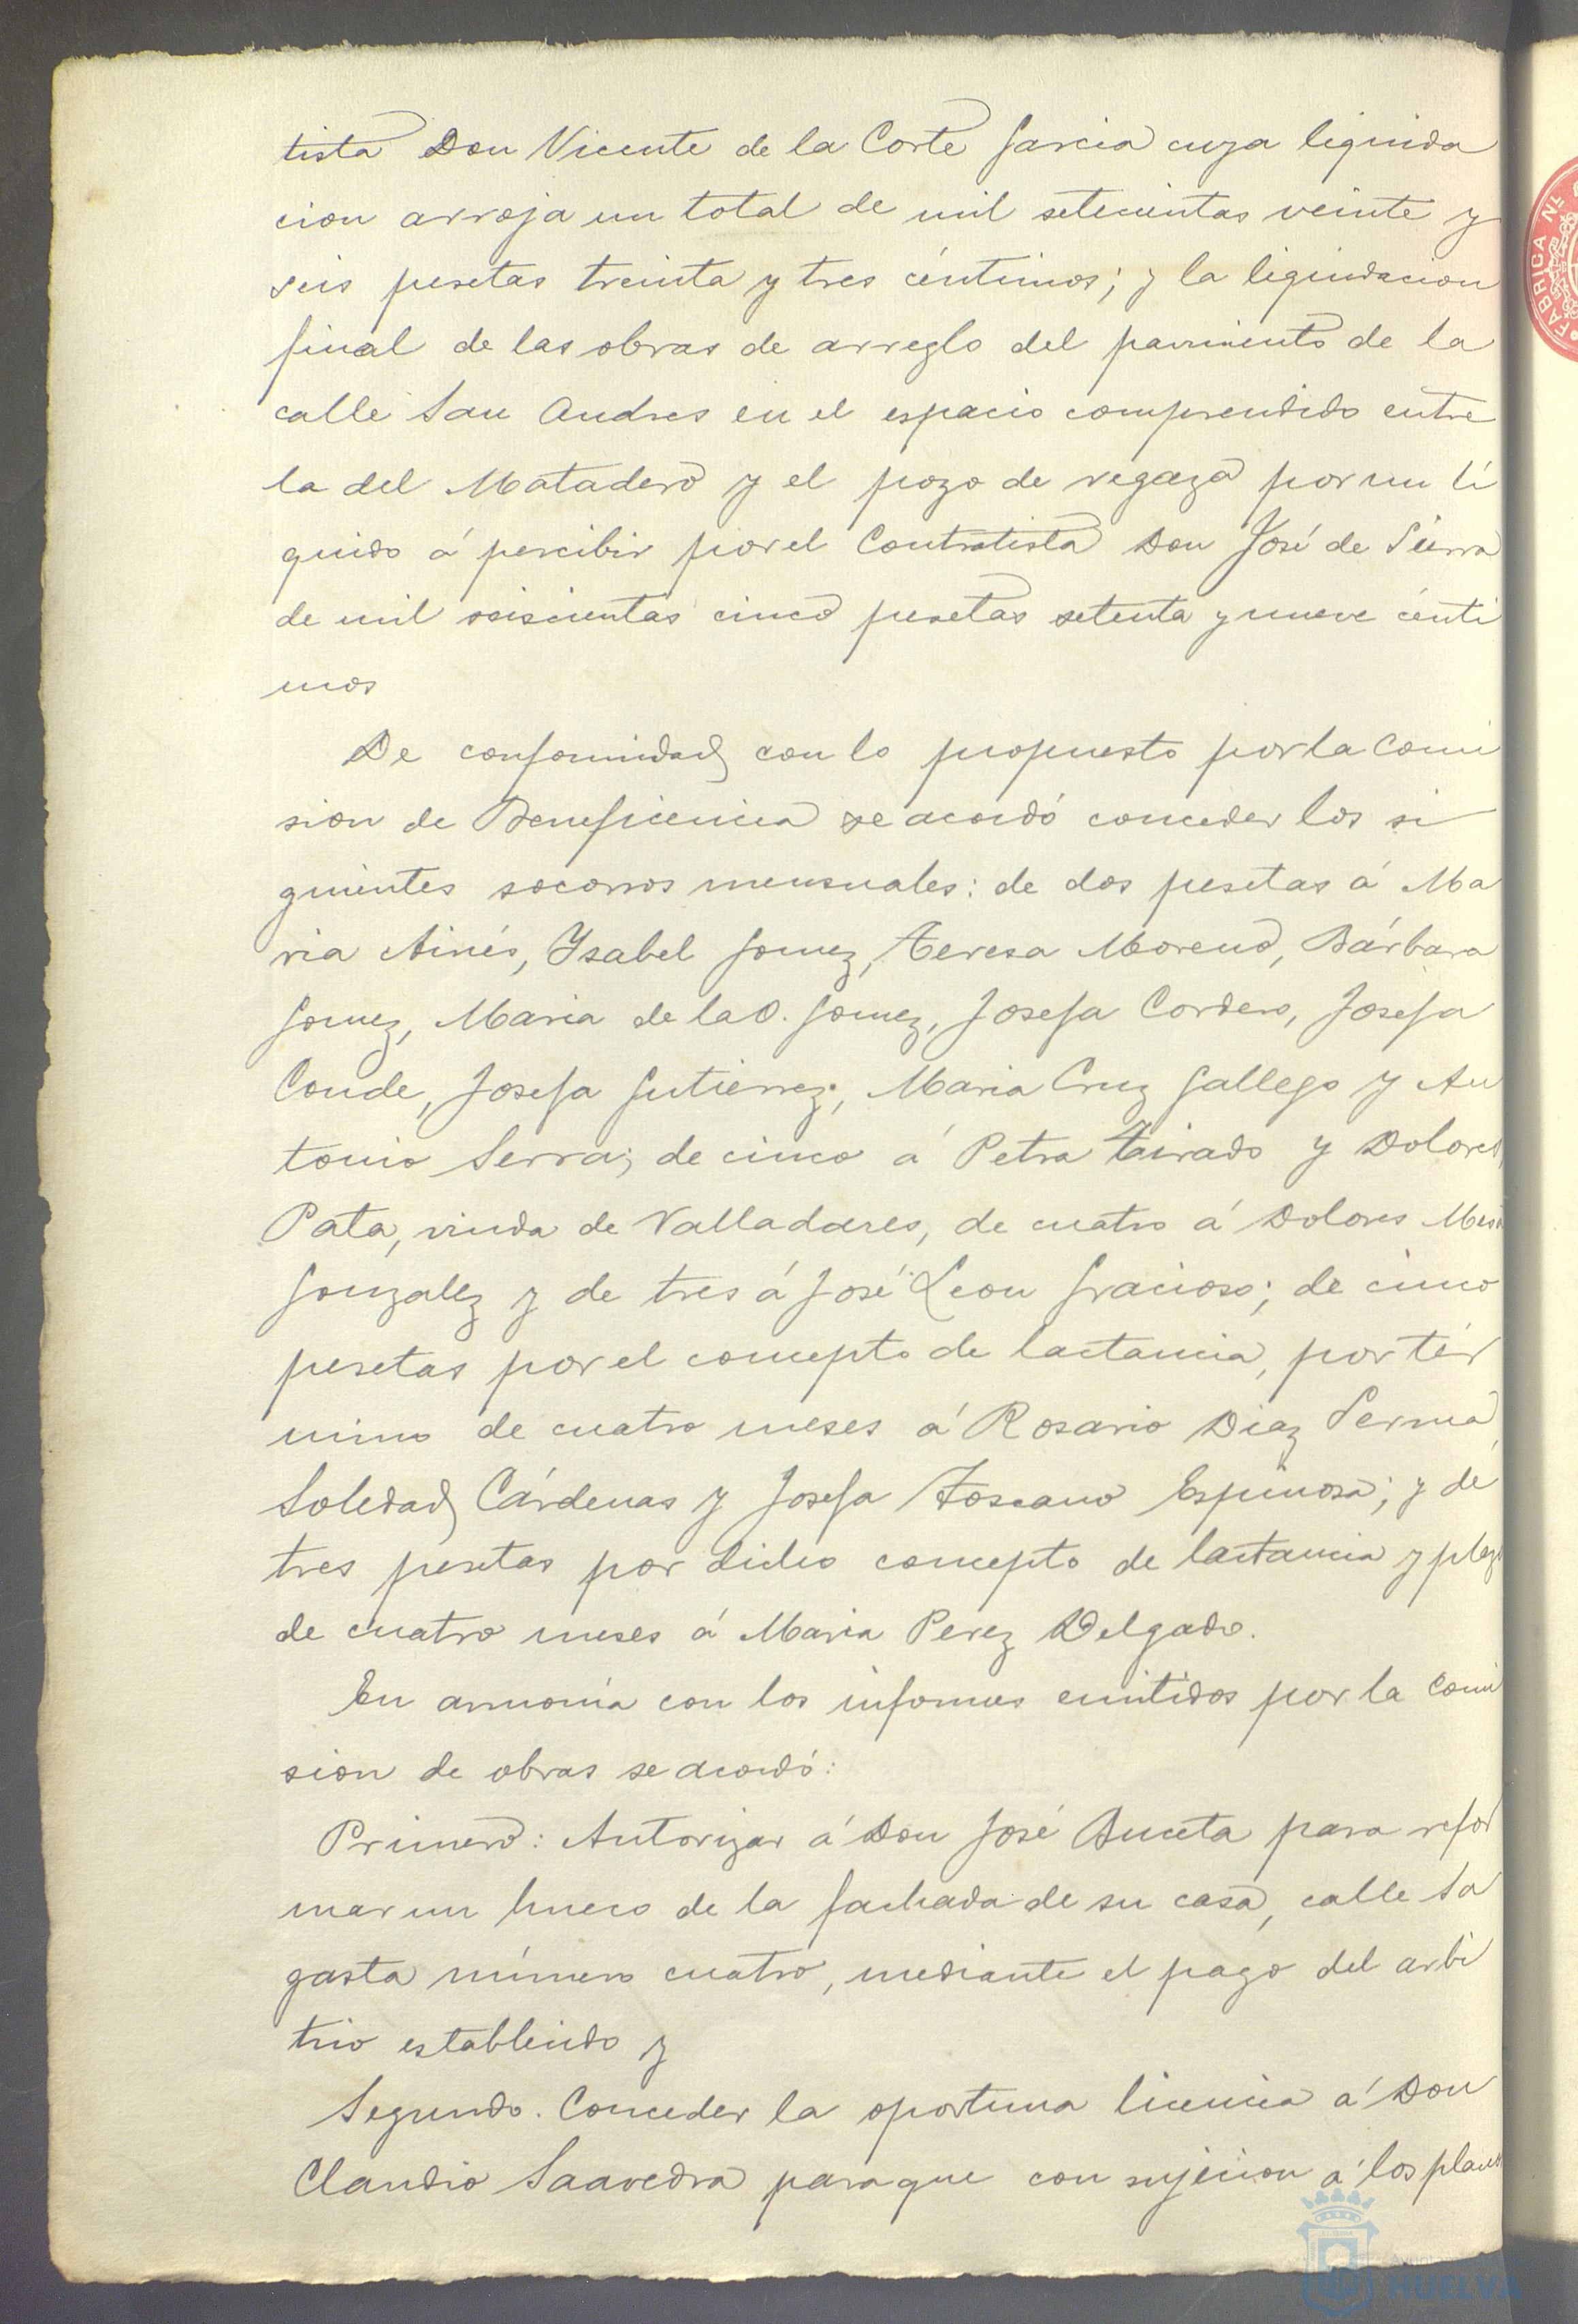 tista Don Vicente de la Corte Garcia cuya liquida
cion arroja un total de mil setecientas veinte y
seis pesetas treinta y tres céntimos; y la liquidacion
final de las obras de arreglo del pavimento de la
calle San Andres en el espacio comprendido entre
la del Matadero y el pozo de regaza por un lí
quido á percibir por el Contratista Don José de Sierra
de mil seiscientas cinco pesetas setenta y nueve cénti
mos
De conformidad con lo propuesto por la Comi
sion de Beneficencia se acordó conceder los si
guientes socorros mensuales: de dos pesetas á Ma
ria Ainés, Ysabel Gomez, Teresa Moreno, Bárbara
Gomez, Maria de la O. Gomez, Josefa Cordero, Josefa
Conde, Josefa Gutierrez, Maria Cruz Gallego y An
tonio Serra; de cinco á Petra Tirado y Dolores
Pata, viuda de Valladares, de cuatro á Dolores Mesa
Gonzalez y de tres á José Leon Gracioso; de cinco
pesetas por el concepto de lactancia, por tér
mino de cuatro meses á Rosario Diaz Serma
Soledad Cárdenas y Josefa Toscano Espinosa; y de
tres pesetas por dicho concepto de lactancia y plazo
de cuatro meses á Maria Perez Delgado.
En armonía con los informes emitidos por la Comi
sion de obras se acordó:
Primero: Autorizar á Don José Buceta para refor
mar un hueco de la fachada de su casa, calle Sa
gasta número cuatro, mediante el pago del arbi
trio establecido y
Segundo. Conceder la oportuna licencia á Don
Claudio Saavedra para que con sujecion á los planos
FABRICA N
HUELVA